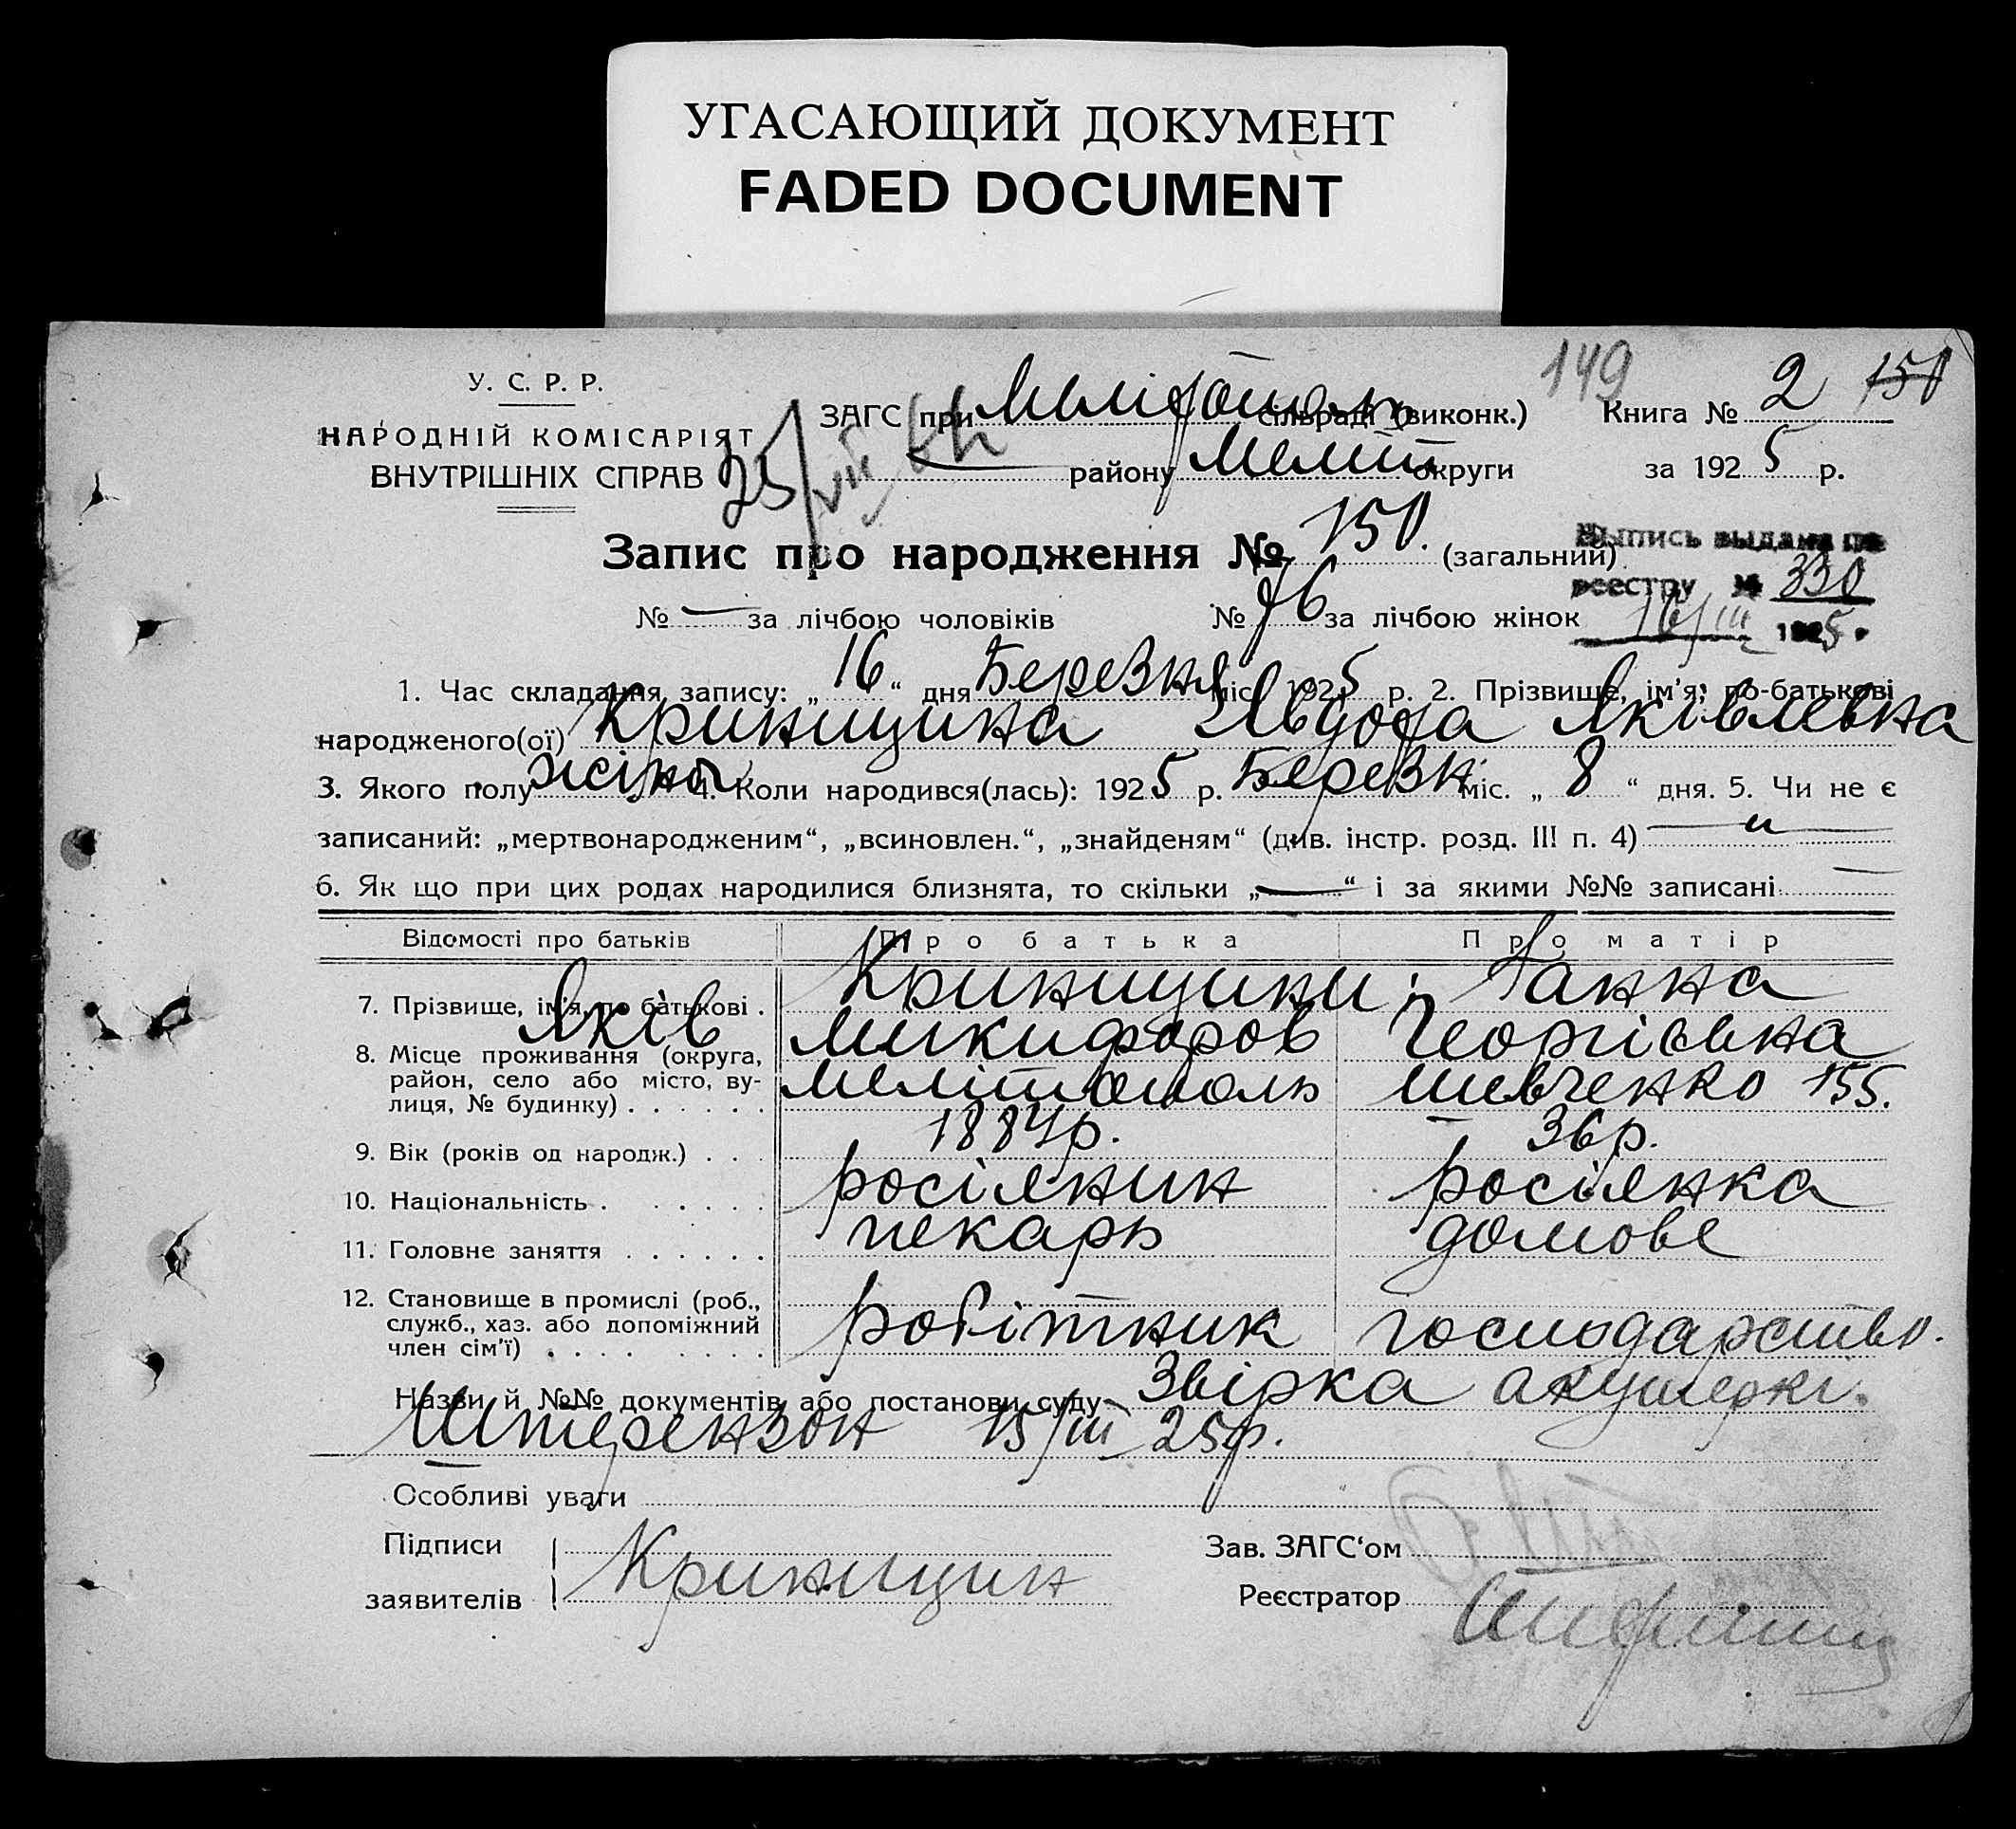 УГАСАЮЩИЙ ДОКУМЕНТ
FADED DOCUMENT
149 150
У. С. Р. Р.
НАРОДНІЙ КОМІСАРІЯТ
ВНУТРІШНІХ СПРАВ
25/VIII
ЗАГС при Мелітополь сільраді (виконк.) Книга № 2
— району Меліт округи за 1925 р.
Запис про народження № 150. (загальний)
Выпись выдана по
реестру № 330
16/III 1925 г.
№ — за лічбою чоловіків № 76 за лічбою жінок
1. Час складання запису: „16“ дня Березня міс. 1925 р. 2. Прізвище, ім'я, по-батькові
народженого(ої) Криницина Явдоха Яківлевна
3. Якого полу жіно 4. Коли народився(лась): 1925 р. Березн міс. „8“ дня. 5. Чи не є
записаний: „мертвонародженим“, „всиновлен.“, „знайденям“ (див. інстр. розд. III п. 4) — „ —
6. Як що при цих родах народилися близнята, то скільки „—“ і за якими №№ записані —
Відомості про батьків Про батька Про матір
7. Прізвище, ім'я, по батькові . Криницини: Ганна
Яків Микифоров Георгієвна
8. Місце проживання (округа, район, село або місто, вулиця, № будинку) . . . . . . Мелітополь Шевченко 155.
9. Вік (років од народж.) . . . 1884р. 36р.
10. Національність . . . . . . . росіянин росіянка
11. Головне заняття . . . . . . пекарь домове
12. Становище в промислі (роб., служб., хаз. або допоміжний член сім'ї) . . . . . . . . робітник господарство.
Назви й №№ документів або постанови суду Звірка акушерки
Штерензон 15/III 25р.
Особливі уваги
Підписи
заявителів Криницин
Зав. ЗАГС'ом
Реєстратор